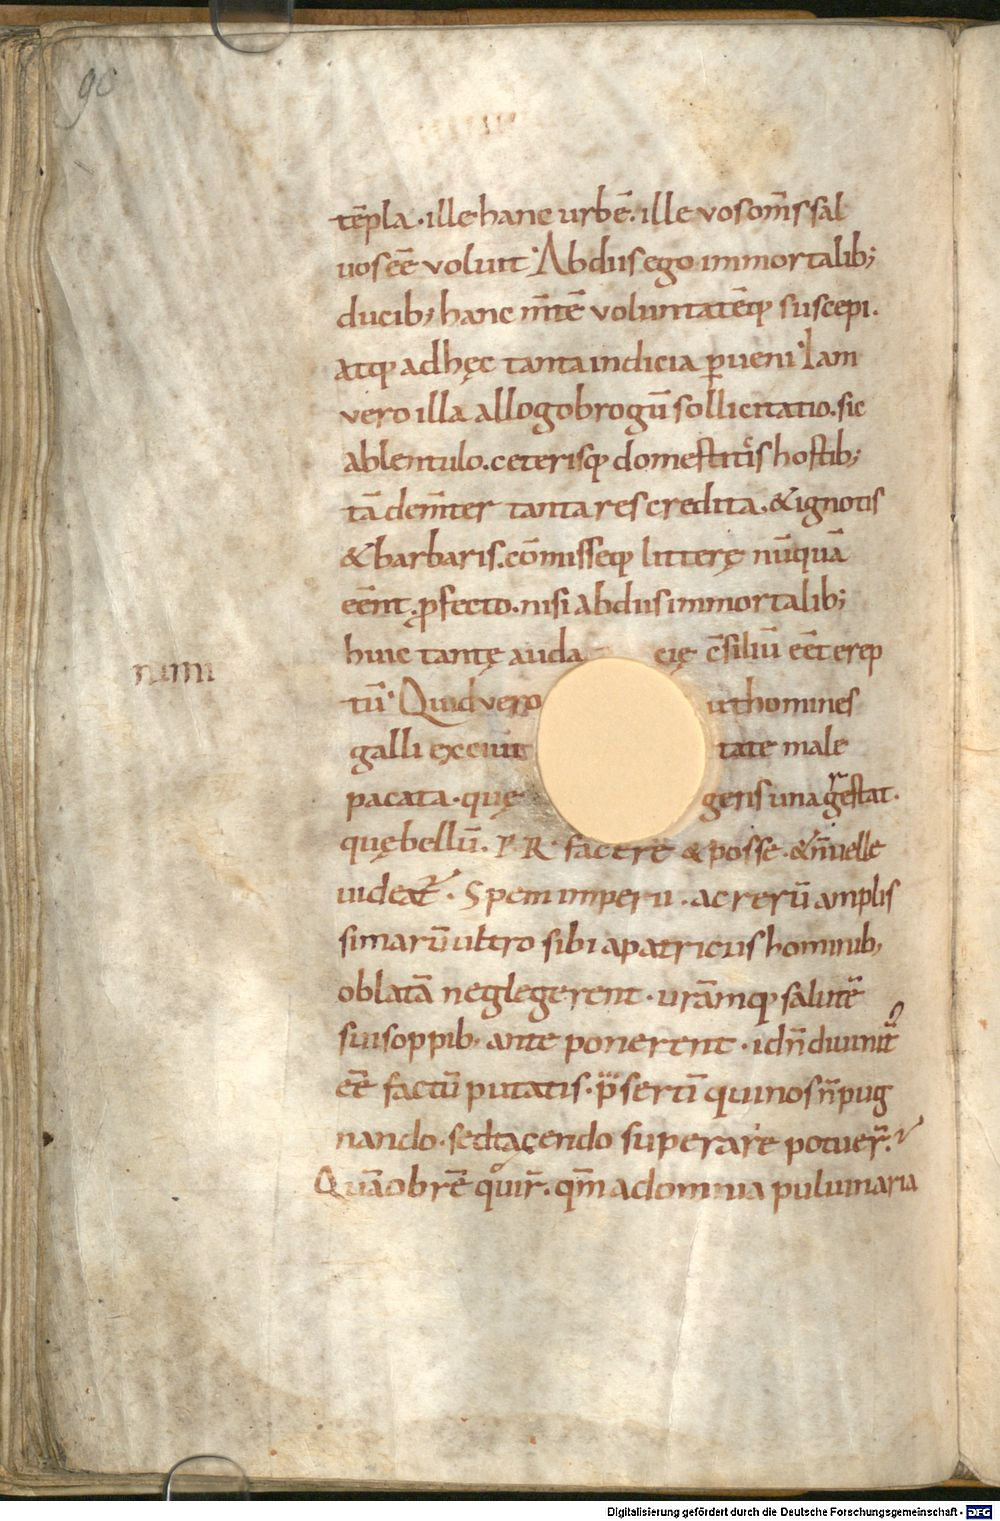 90
tēpla . ille hanc urbē . ille vos om̄s sal
uos eē voluit . A b diis ego immortalib;
ducib; hanc m̄tē voluntatēq; suscepi .
atq; ad hęc tanta indicia p̱ueni . Iam
vero illa allogobrogū sollicitatio . sic
ab lentulo . ceterisq; domestitis hostib;
tā dem̄ter tanta res credita . & ignotis
& barbaris . cōmisseq; litterę nūquā
eēnt . p̱fecto . nisi ab diis immortalib;
huic tantę auda cię c̄siliū eēt erep
tū . Quid vero ut homines
numi
galli ex ciuit tate male
pacata . quę gens una gͬ estat .
quę bellū . P R . facere & posse . & n̄ uelle
uideat̃ . Spem imperii . ac rerū amplis
simarū ultro sibi a patriciis hominib;
oblatā neglegerent . urāmq; salutē
suis oppib; ante ponerent . id n̄ diuinit̃
eē factū putatis . p̄sertī qui nos n̄ pug
nando . sed tacendo superare potuer̄ .
Quāobrē q°uir̄ . qm̄ ad omnia puluinaria
Digitalisierung gefördert durch die Deutsche Forschungsgemeinschaft - DFG